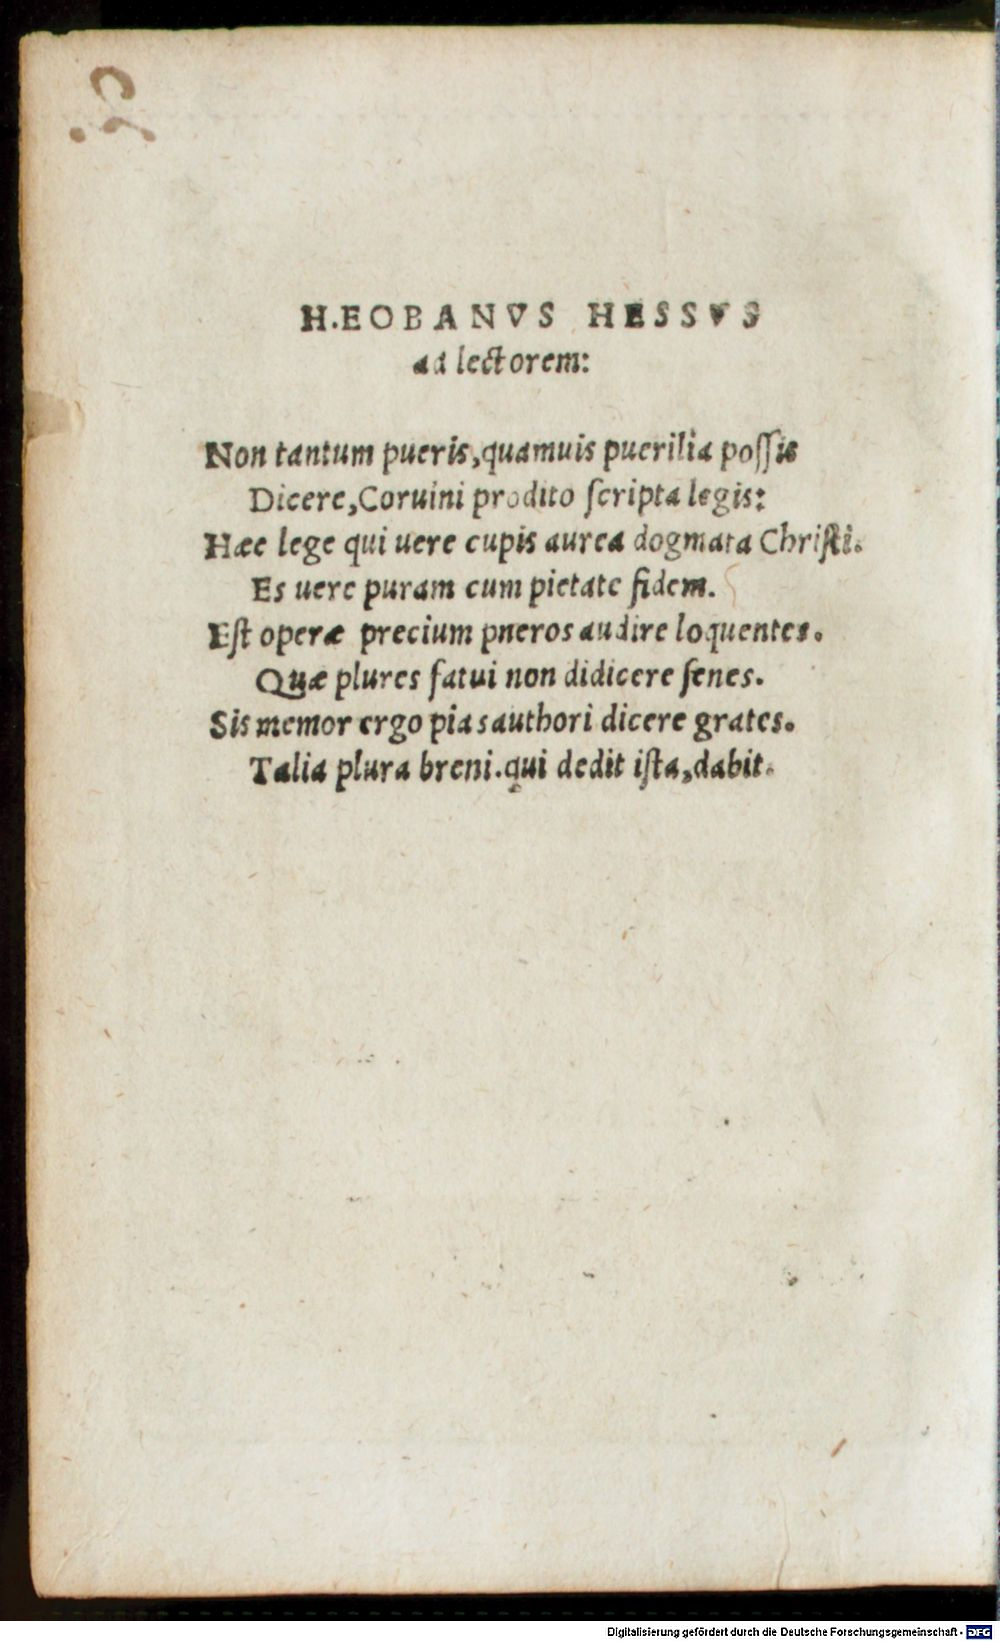 H.EOBANVS HESSVS
ad lectorem:
Non tantum pueris, quamuis puerilia possis
Dicere, Coruini prodito scripta legis:
Hæc lege qui uere cupis aurea dogmata Christi.
Es uere puram cum pietate fidem.
Est operæ precium pneros audire loquentes.
Quæ plures fatui non didicere senes.
Sis memor ergo pias authori dicere grates.
Talia plura breni. qui dedit ista, dabit.
Digitalisierung gefördert durch die Deutsche Forschungsgemeinschaft - DFG